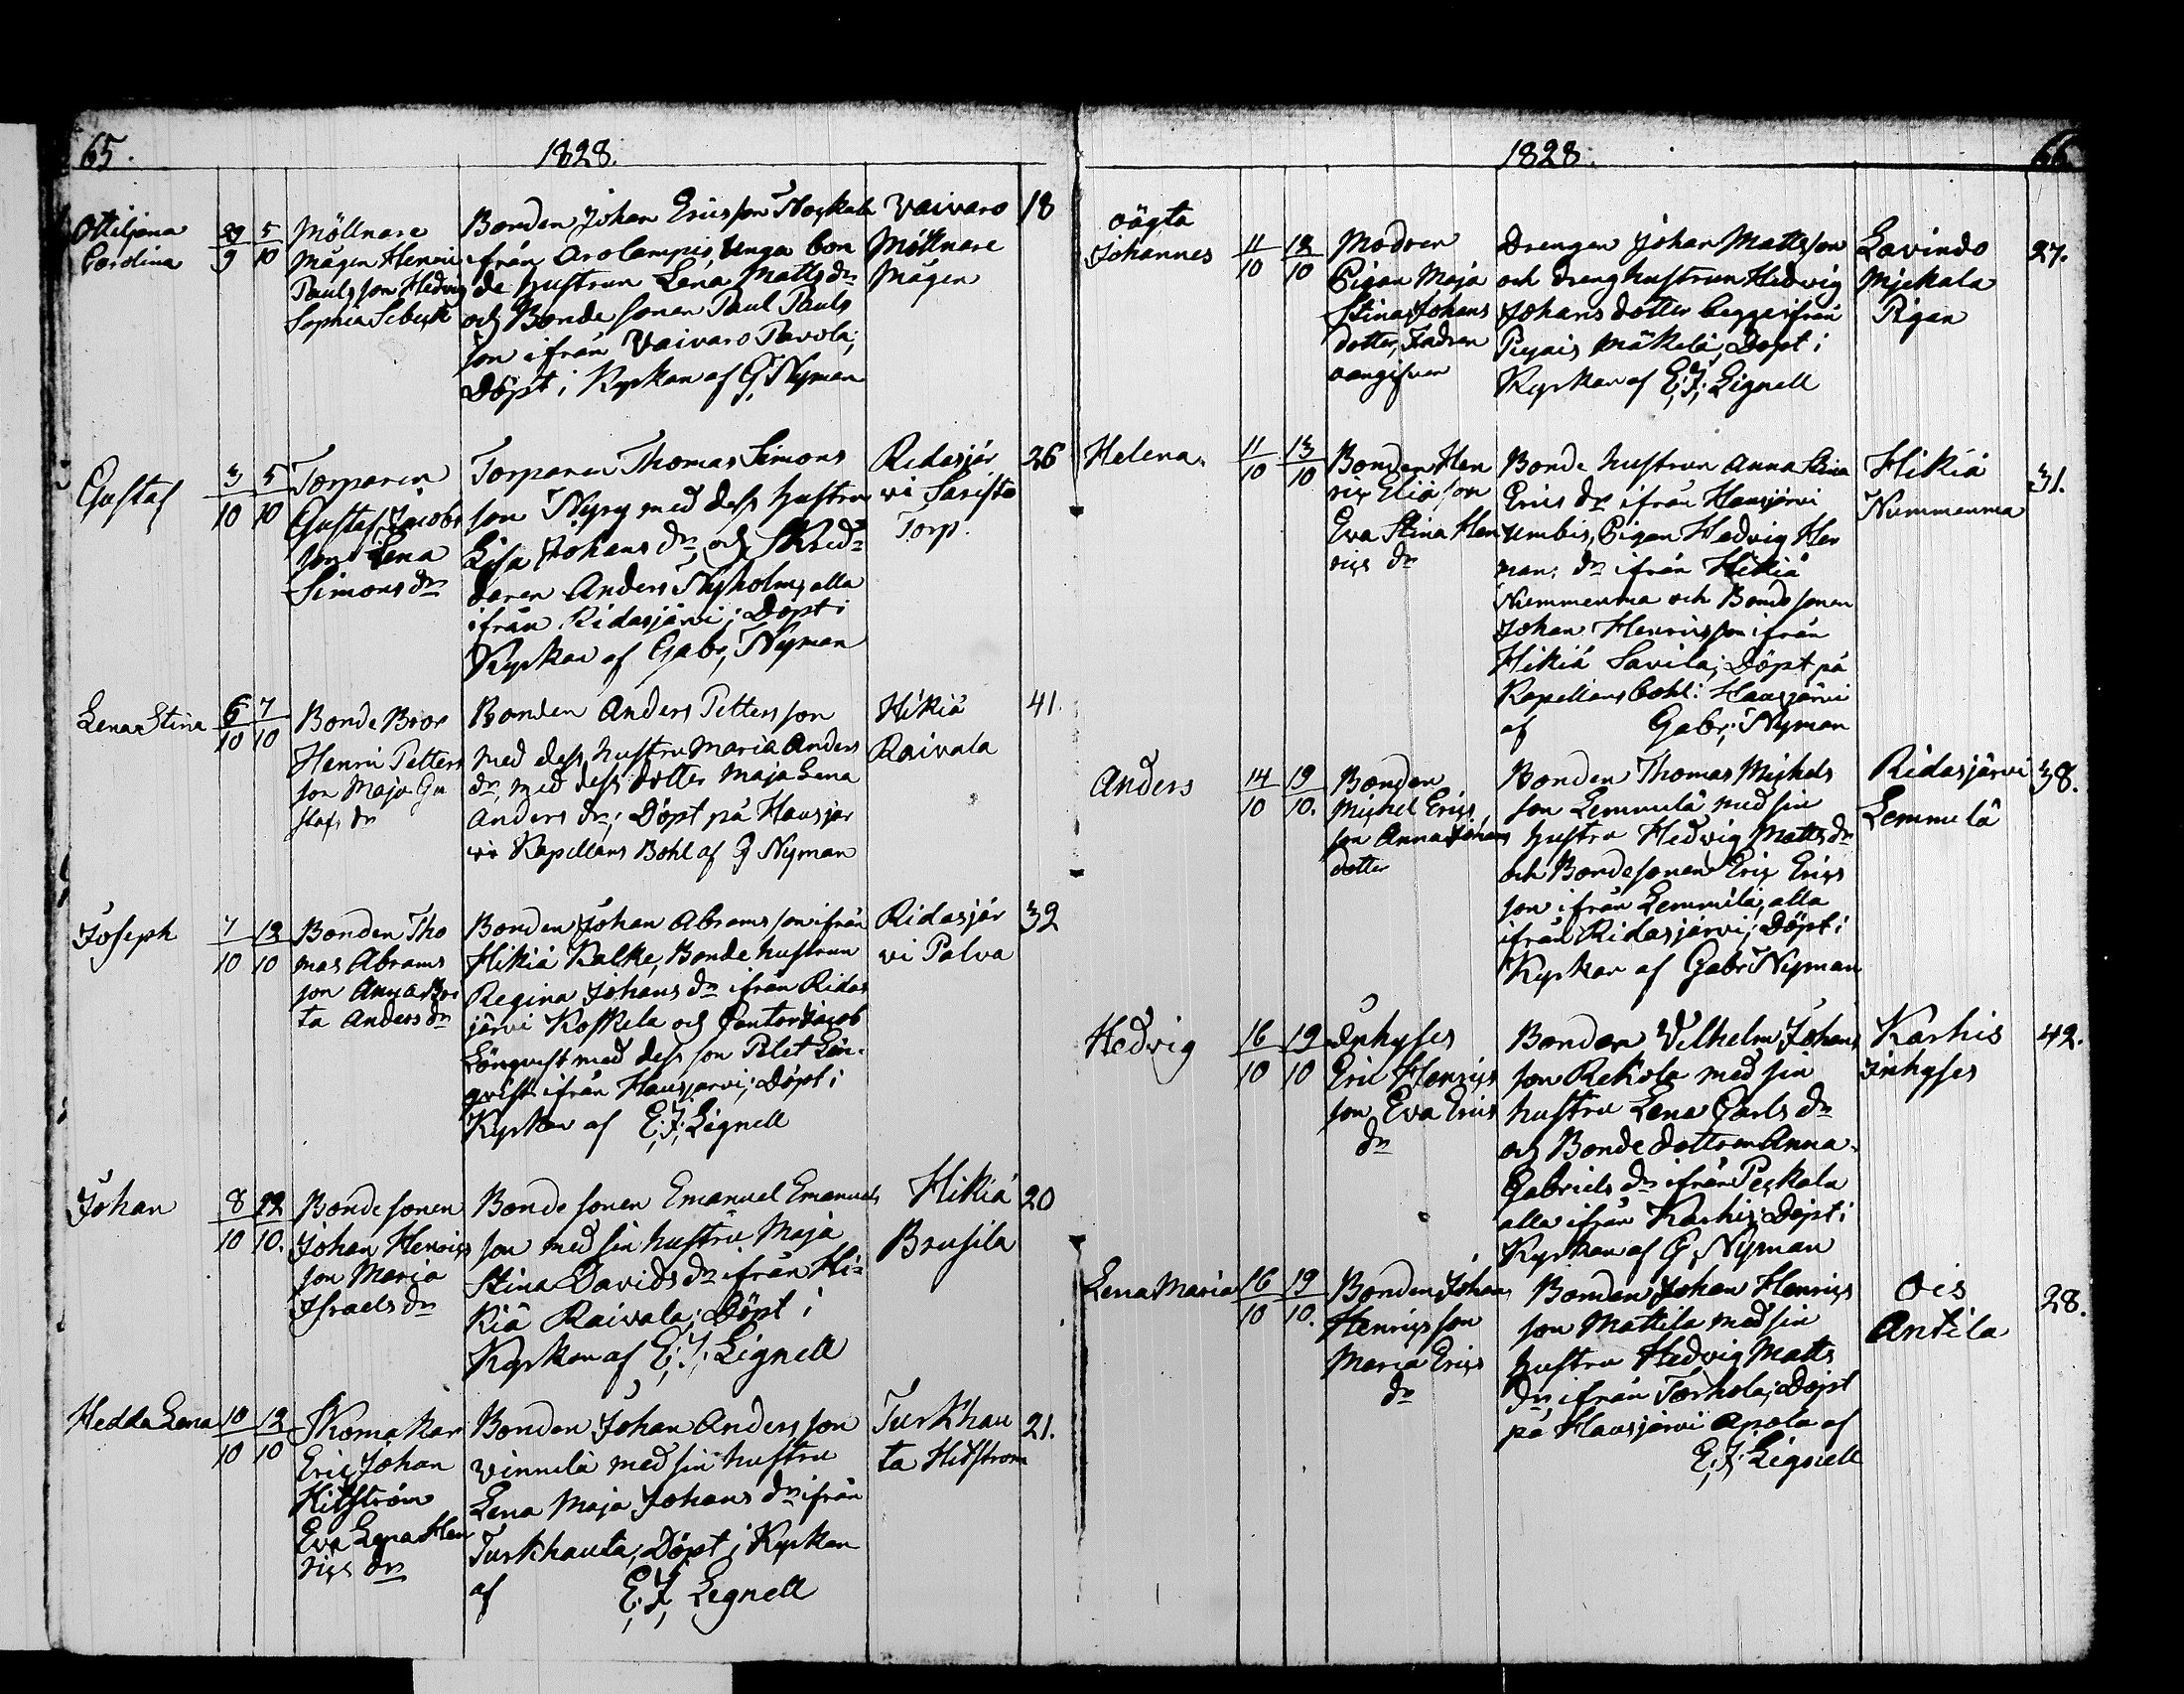 65.
1828.
Ottiljana
Carolina
29/9
5/10
Möllnare
Mågen Henric
Pauls son Hedvig
Sophia Sebeck
Bonden Johan Ericsson Noskala
ifrån Arolampis, Unga bon
de hustrun Lena Matts dr
och Bonde sonen Paul Pauls
son ifrån Vaivaro Pavola;
Döpt i Kyrkan af G. Nyman
Vaivaro
Möllnare
Mågen
18
Gustaf
3/10
5/10
Torparen
Gustaf Jacobs
son Lena
Simons dr
Torparen Thomas Simons
son Nyry med dess hustru
Lisa Johans dr och Skräd=
daren Anders Nyholm, alla
ifrån Ridasjärvi; Döpt i
Kyrkan af Gabr, Nyman
Ridasjär
vi Saristo
Torp.
26
Lena Stina
6/10
7/10
Bonde Bror
Henric Petters
son Maja Gu
stafs dr
Bonden Anders Petters son
med dess hustru Maria Anders
dr, med dess dotter Maja Lena
Anders dr; Döpt på Hausjär
vi Kapellans Bohl af G Nyman
Hikiä
Raivala
41.
Joseph
7/10
12/10
Bonden Tho
mas Abrams
son Anna Bri
ta Anders dr
Bonden Johan Abrams son ifrån
Hikiä Kalke, Bonde hustrun
Regina Johans dr ifrån Ridas
järvi Koskela och Cantor Jacob
Lönqvist med dess son Lön=
qvist ifrån Hausjärvi; Döpt i
Kyrkan af E; J; Lignell
Ridasjär
vi Palva
32
Johan
8/10
12/10.
Bonde sonen
Johan Henrics
son Maria
Israels dr
Bonde sonen Emanuel Emanuels
son med sin hustru Maja
Stina Davids dr ifrån Hi=
kiä Raivala; Döpt i
Kyrkan af E; J; Lignell
Hikiä
Brusila
20
Hedda Lena
10/10
12/10
Skomakar
Eric Johan
Hitström
Eva Lena Hen
rics dr
Bonden Johan Anders son
Vinnilä med sin hustru
Lena Maja Johans dr ifrån
Turkhauta, Döpt i Kyrkan
af E; J; Lignell
Turkhau
ta Hitström
21.
1828.
66.
oägta
Johannes
11/10
12/10
Modren
Pigan Maja
Stina Johans
dotter, Fadren
oangifven
Drengen Johan Mattsson
och dreng hustrun Hedvig
Johans dotter begge ifrån
Pujais Mäkelä; Döpt i
Kyrkan af E; J; Lignell
Lavindo
Mickala
Pigan
27.
Helena.
11/10
13/10
Bonden Hen
ric Elia son
Eva Stina Hen
rics dr
Bonde hustrun Anna Stina
Erics dr ifrån Hausjärvi
Umbis, Pigan Hedvig Her
man; dr ifrån Hikiä
Nummenma och Bonde sonen
Johan Henricsson ifrån
Hikiä Savila; Döpt på
Kapellans bohl: Hausjärvi
af Gabr; Nyman
Hikiä
Nummenma
31.
Anders
14/10
19/10.
Bonden
Michel Erics
son Anna Johans
dotter
Bonden Thomas Michels
son Lemmilä med sin
hustru Hedvig Matts dr
och Bonde sonen Eric Erics
son ifrån Lemmilä, alla
ifrån Ridasjärvi; Döpt i
Kyrkan af Gabr Nyman
Ridasjärvi
Lemmilä
38.
Hedvig
16/10
19/10
Inhyses
Eric Henrics
son Eva Erics
dr
Bonden Vilhelm Johans
son Rekola med sin
hustru Lena Carls dr
och Bonde dottren Anna
Gabriels dr ifrån Peckala
alla ifrån Karhis; Döpt i
Kyrkan af G; Nyman
Karhis
Inhyses
42.
Lena Maria
16/10
19/10.
Bonden Johan
Henrics son
Maria Erics
dr
Bonden Johan Henrics
son Mattila med sin
hustru Hedvig Matts
dr ifrån Torhola; Döpt
på Hausjärvi Apola af
E; J; Lignell
Ois
Antila
28.